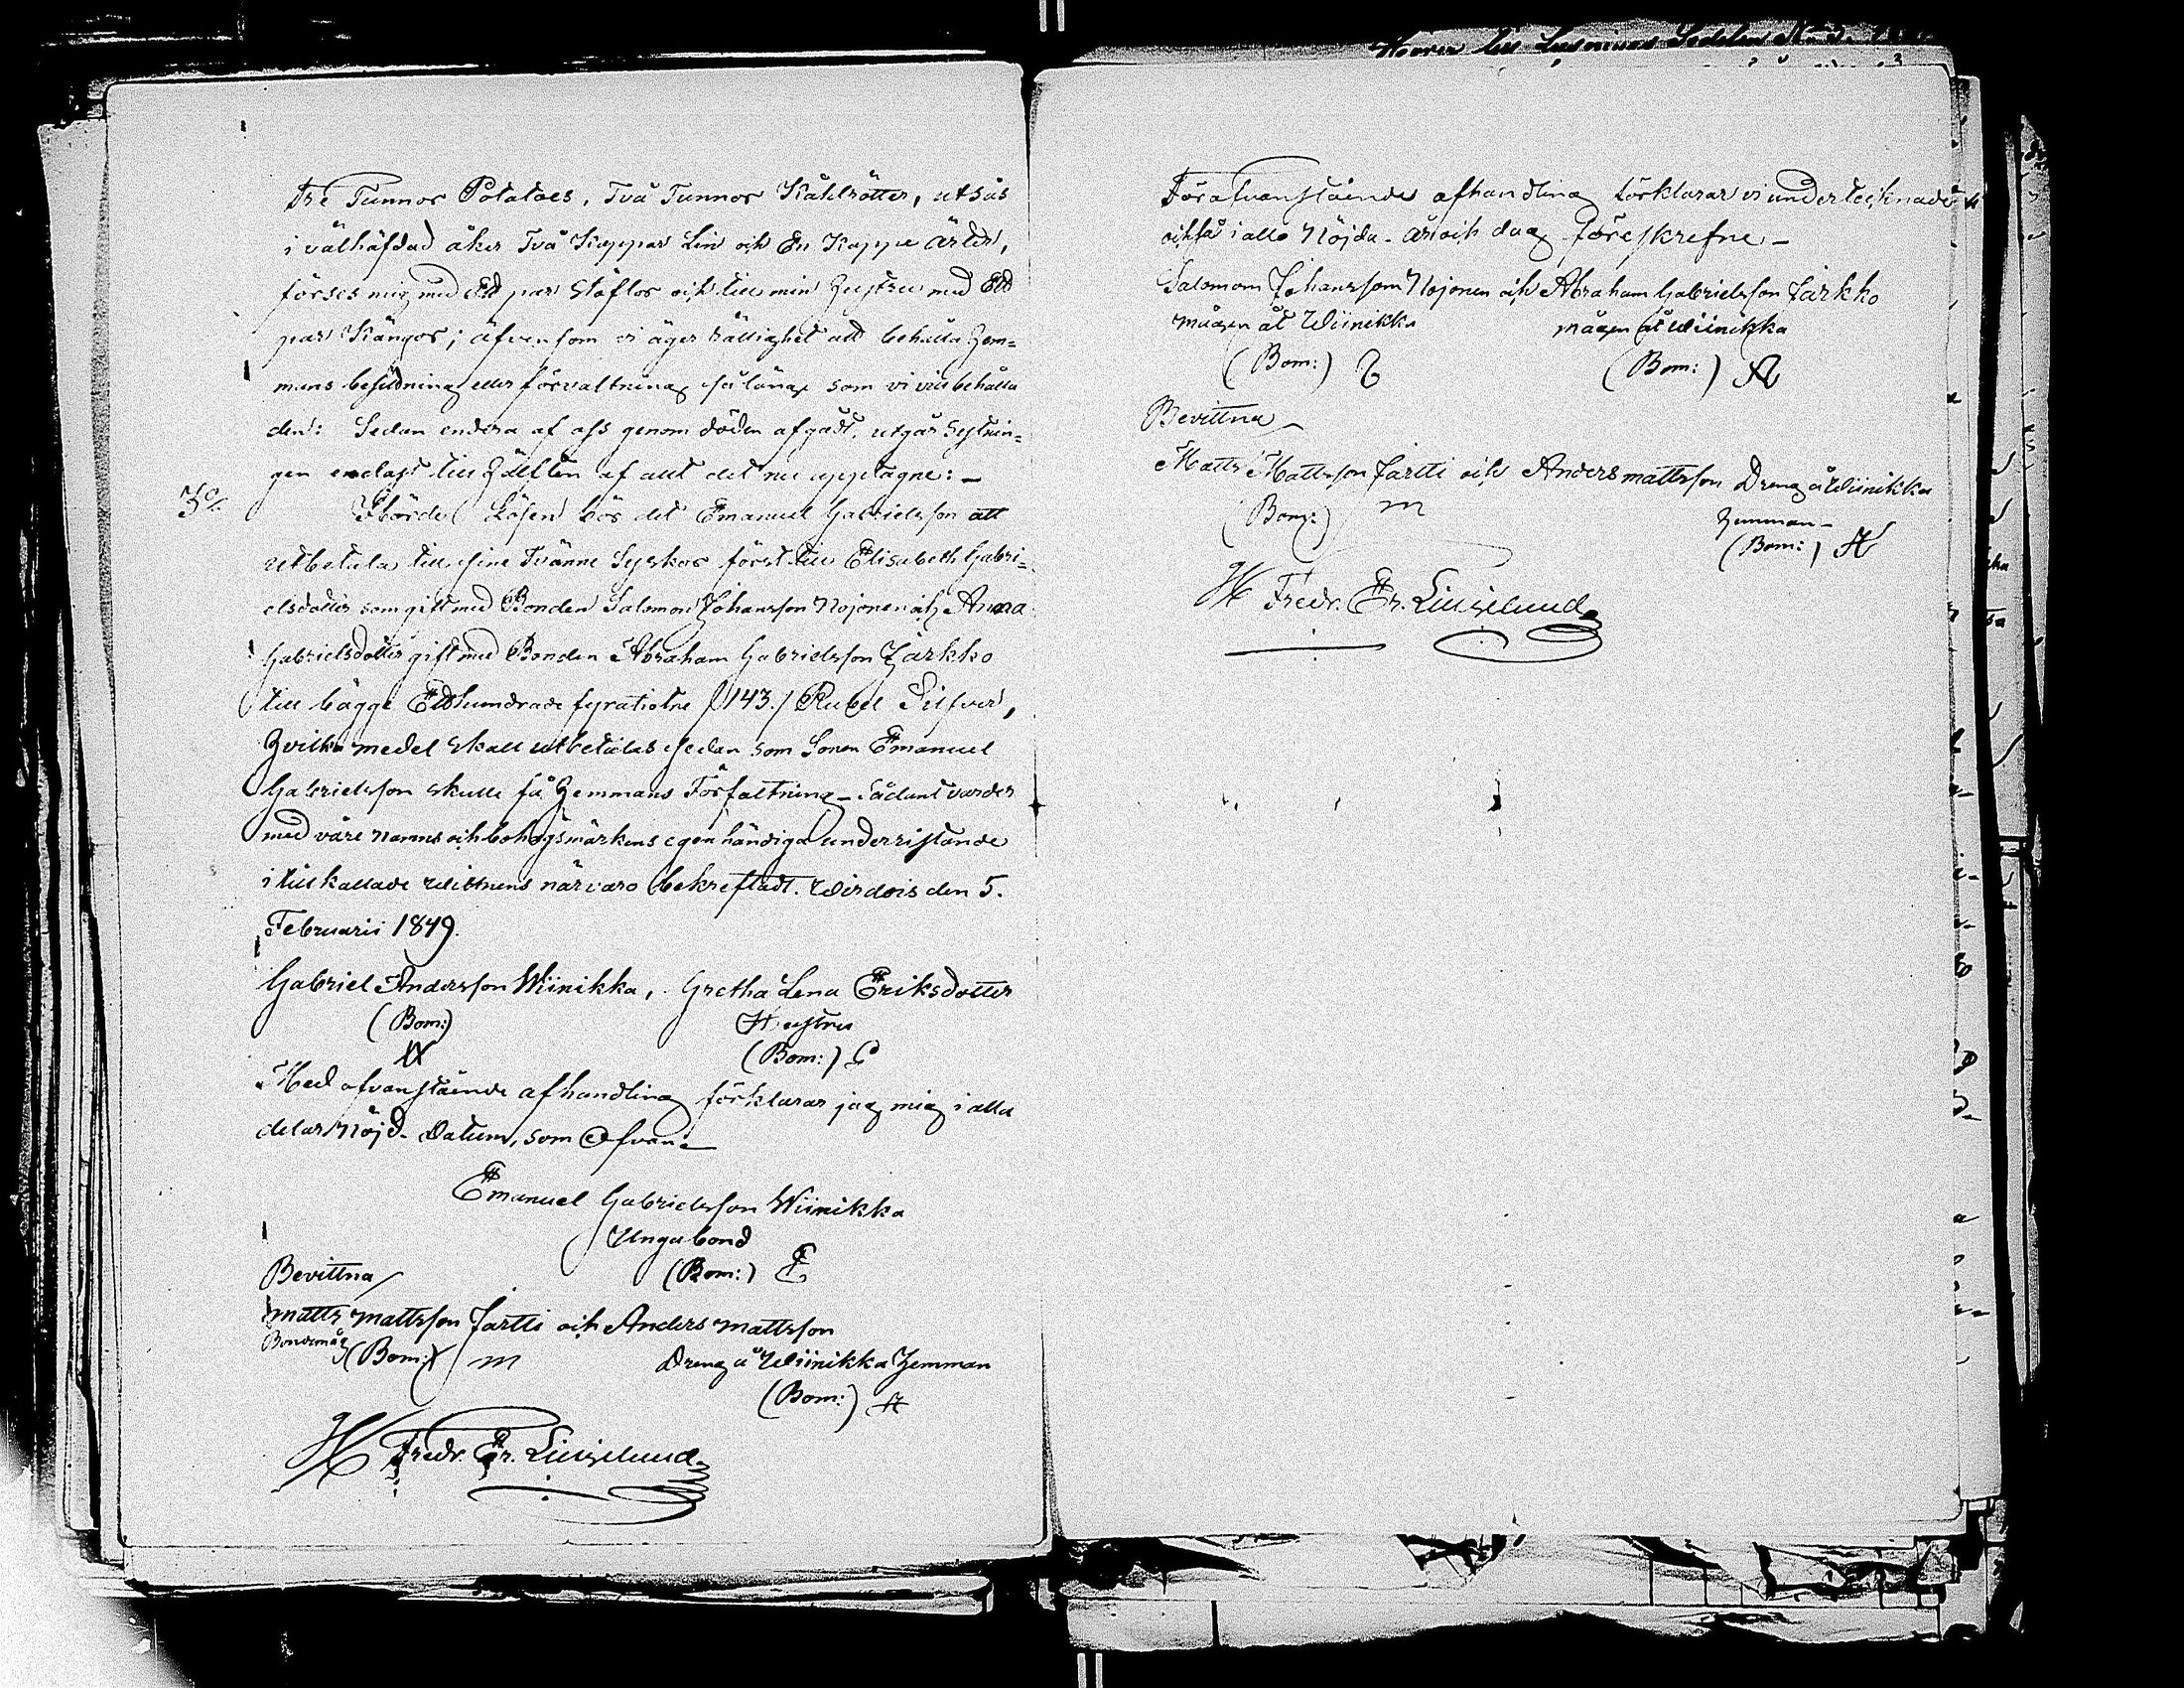 tre Tunnor Potatoes, Två Tunnor Kåhlrötter, utsås
i välhäfdad åker Två Kappar Lin och En Kappe ärter,
förses mig med Ett par Stöflor och till min Hustru med Ett
par Kängor; äfvensom vi äger rättighet att behålla Hem-
mans besittning eller förvaltning så länge som vi vill behålla
den: Sedan endera af oss genom döden afgådt, utgår Sytnin-
gen endast till Hälften af allt det nu upptagne: -
3o/. Jborde Lösen bör det Emanuel Gabrielsson att
utbetala till sine Tvänne Syskor först till Elisabeth Gabri-
elsdotter som gift med Bonden Salomon Johansson Nojonen och Anna
Gabrielsdotter gift med Bonden Abraham Gabrielsson Jarkko
till bägge Etthundrade fyratiotre /143./ Rubel Silfver,
Hvilka medel skall utbetalas sedan som Sonen Emanuel
Gabrielsson skulle få Hemmans Författning - Sådant varder
med våre namns och bohagsmärkens egenhändiga underristande
i tillkallade Wittnens närvaro bekreftadt. Wirdois den 5.
Februarii 1849.
Gabriel Andersson Wiinikka, Gretha Lena Eriksdotter
(Bom:) Hustru
(Bom:) G
Med ofvanstående afhandling förklarar jag mig i alla
delar Nöjd. Datum, som Ofvan -
Emanuel Gabrielsson Wiinikka
Unga bond
Bevittna (Bom:) E
Matts Mattsson Jartti och Anders Mattsson
Bondemåg (Bom:) m Dreng å Wiinikka Hemman
(Bom:) A
H Fredr. Er. Liljelund
Föratvanstående afhandling förklarar vi undertecknade
också i allo Nöjda. År och dag föreskrefne -
Salomon Johansson Nojonen och Abraham Gabrielsson Jarkko
mågen åt Wiinikka mågen åt Wiinikka
(Bom:) (Bom:)
Bevittna
Matts Mattsson Jartti och Anders Mattsson Dreng å Wiinikka
(Bom:) m Hemman -
(Bom:) A
H Fredr. Er. Liljelund